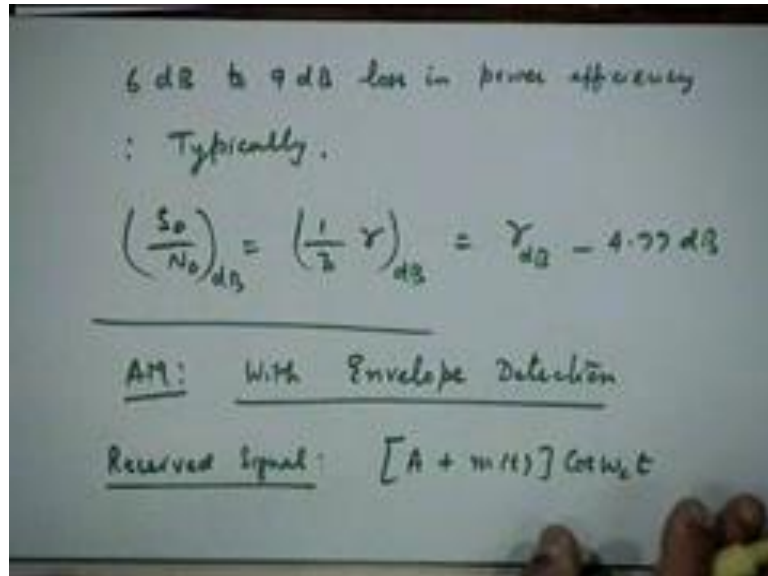 6 dB to 9 dB loss in power efficiency
: Typically.
(So/No)dB = (1/3 γ)dB = γdB - 4.77 dB
AM: With Envelope Detection
Received Signal: [A + m(t)] Cos ωc t